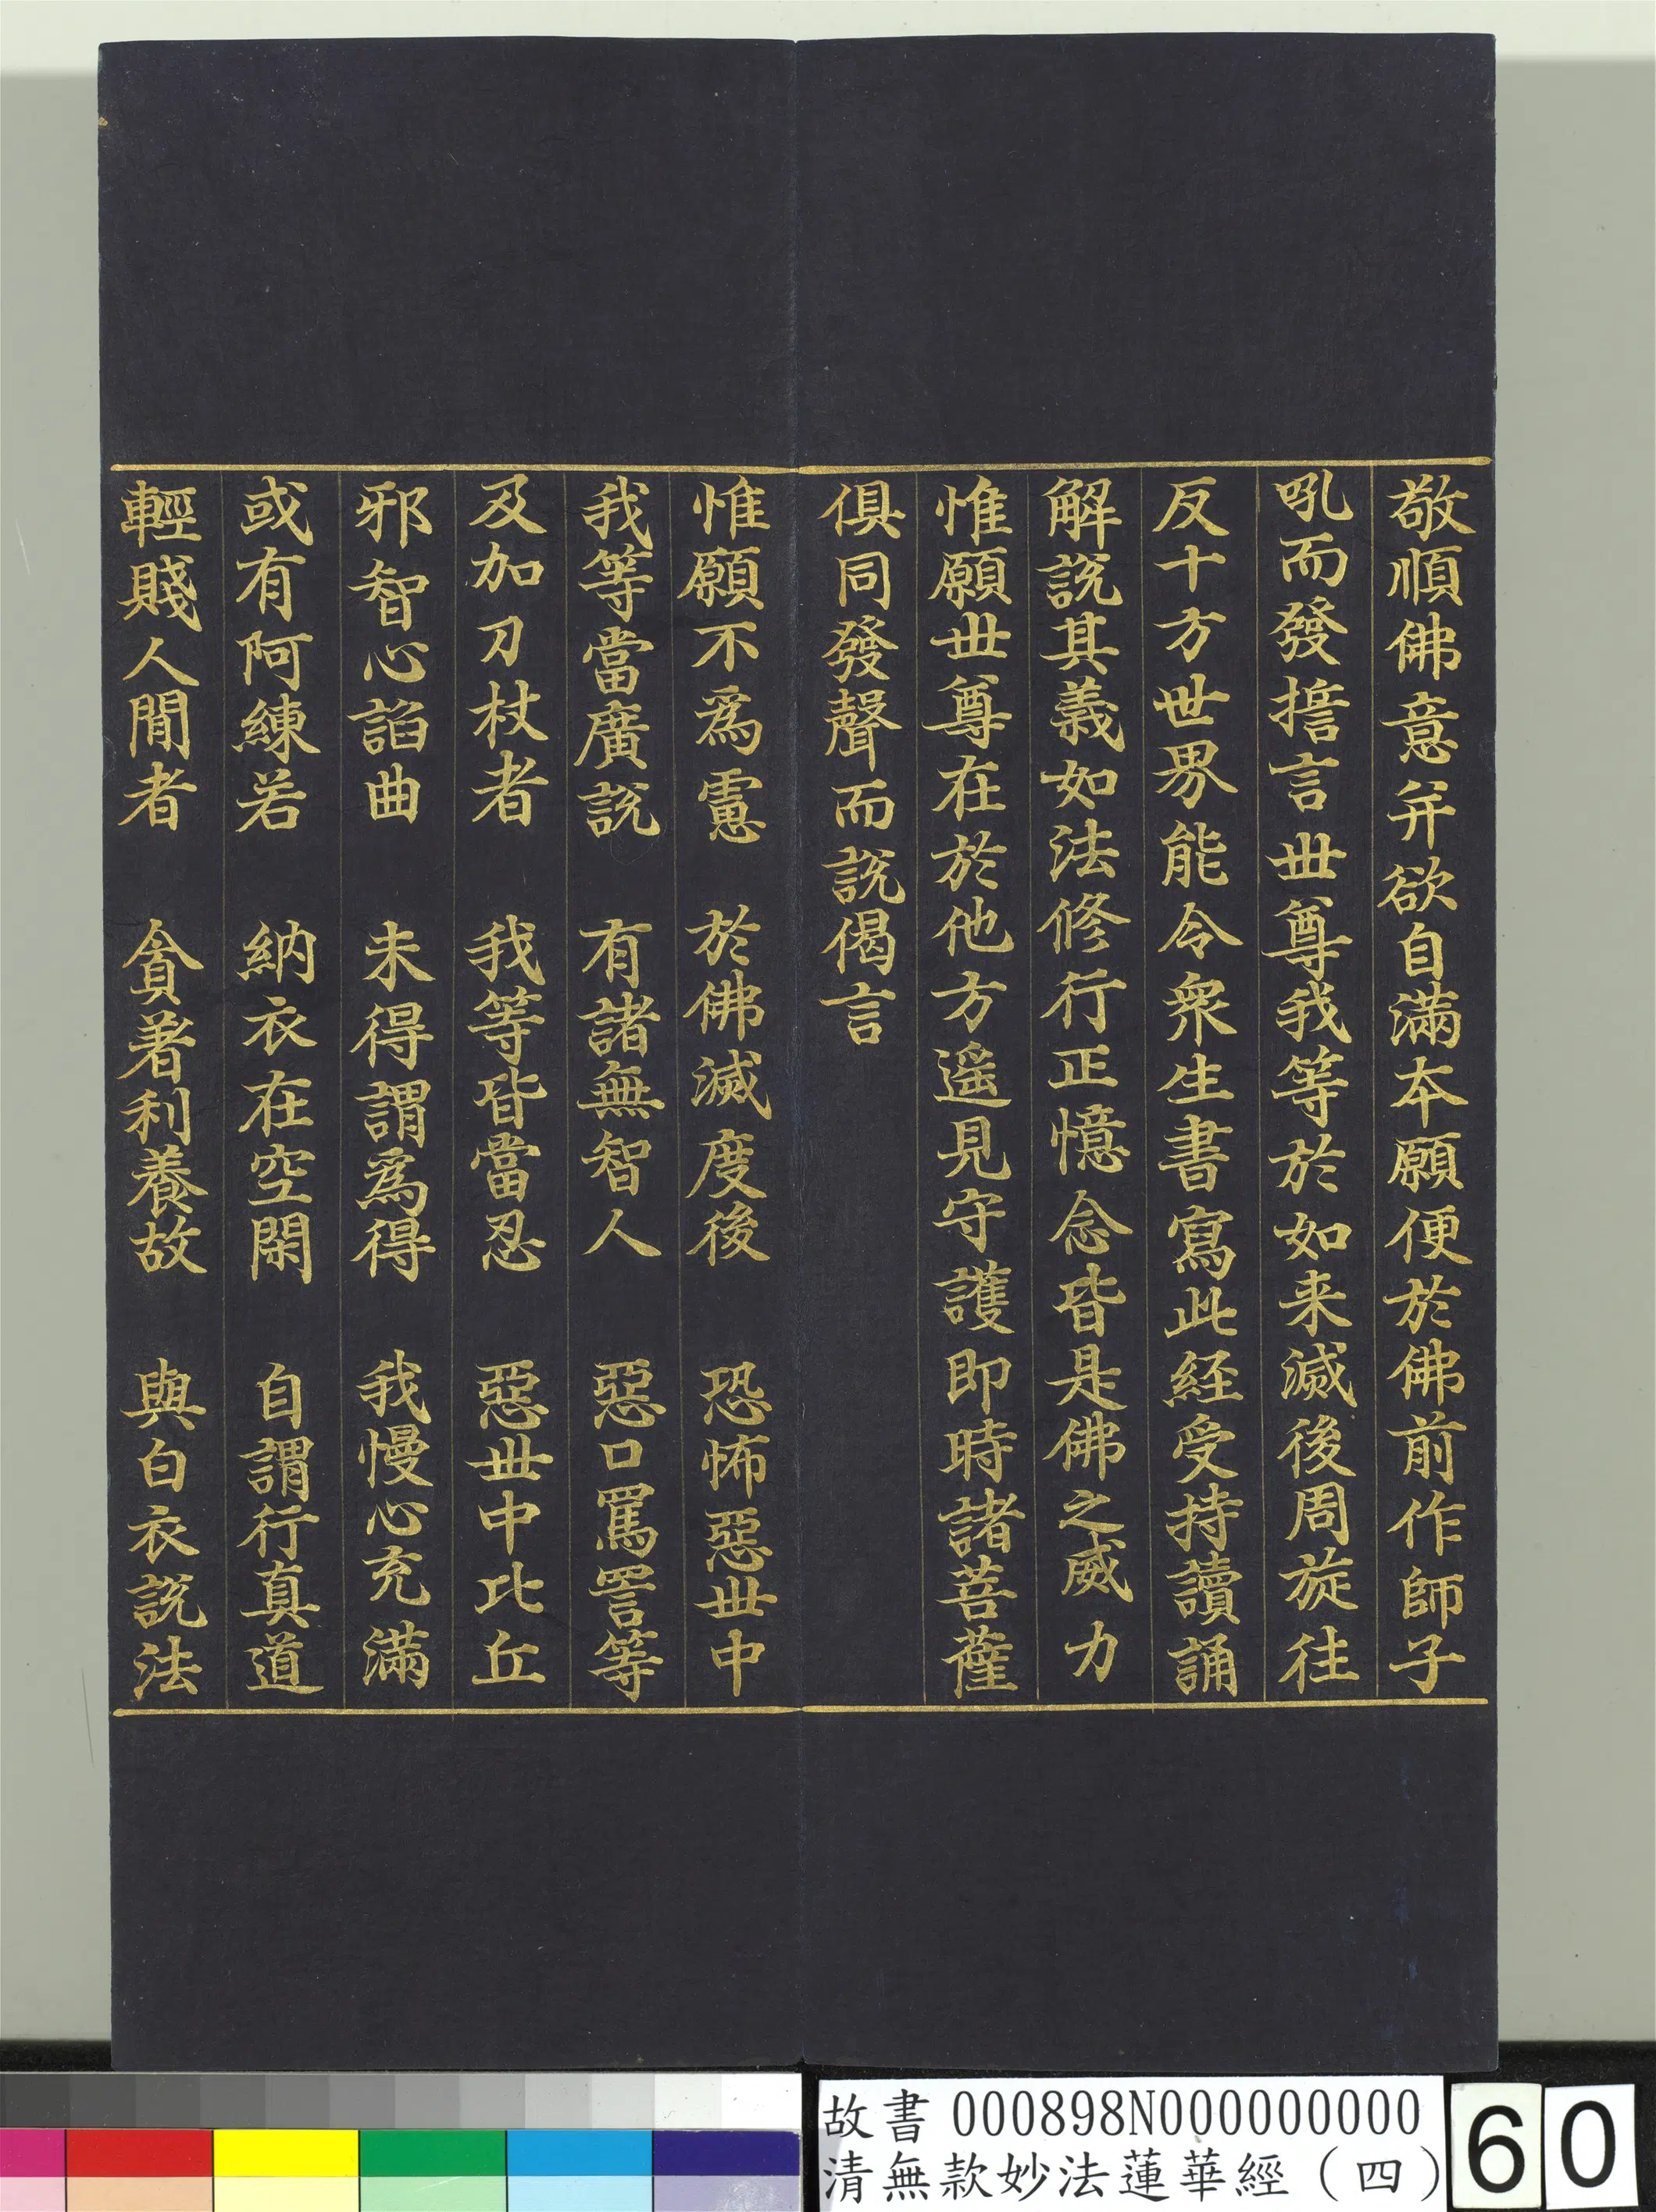 敬順佛意并欲自滿本願便於佛前作師子
吼而發擔言世尊我等於如来滅後周旋往
反十方世界能令衆生書寫此経受持讀誦
解說其義如法修行正憶念皆是佛之威力
惟願世尊在於他方遥見守護即時諸菩薩
俱同發聲而說偈言
惟願不為慮　於佛滅度後　恐怖惡世中
我等當廣說　有諸無智人　惡口罵詈等
及加刀杖者　我等皆當忍　惡世中比丘
邪智心諂曲　未得謂為得　我慢心充滿
或有阿練若　納衣在空閑　自謂行真道
輕賤人間者　貪著利養故　與白衣說法
故書 000898N000000000
清無款妙法蓮華經（四）
60